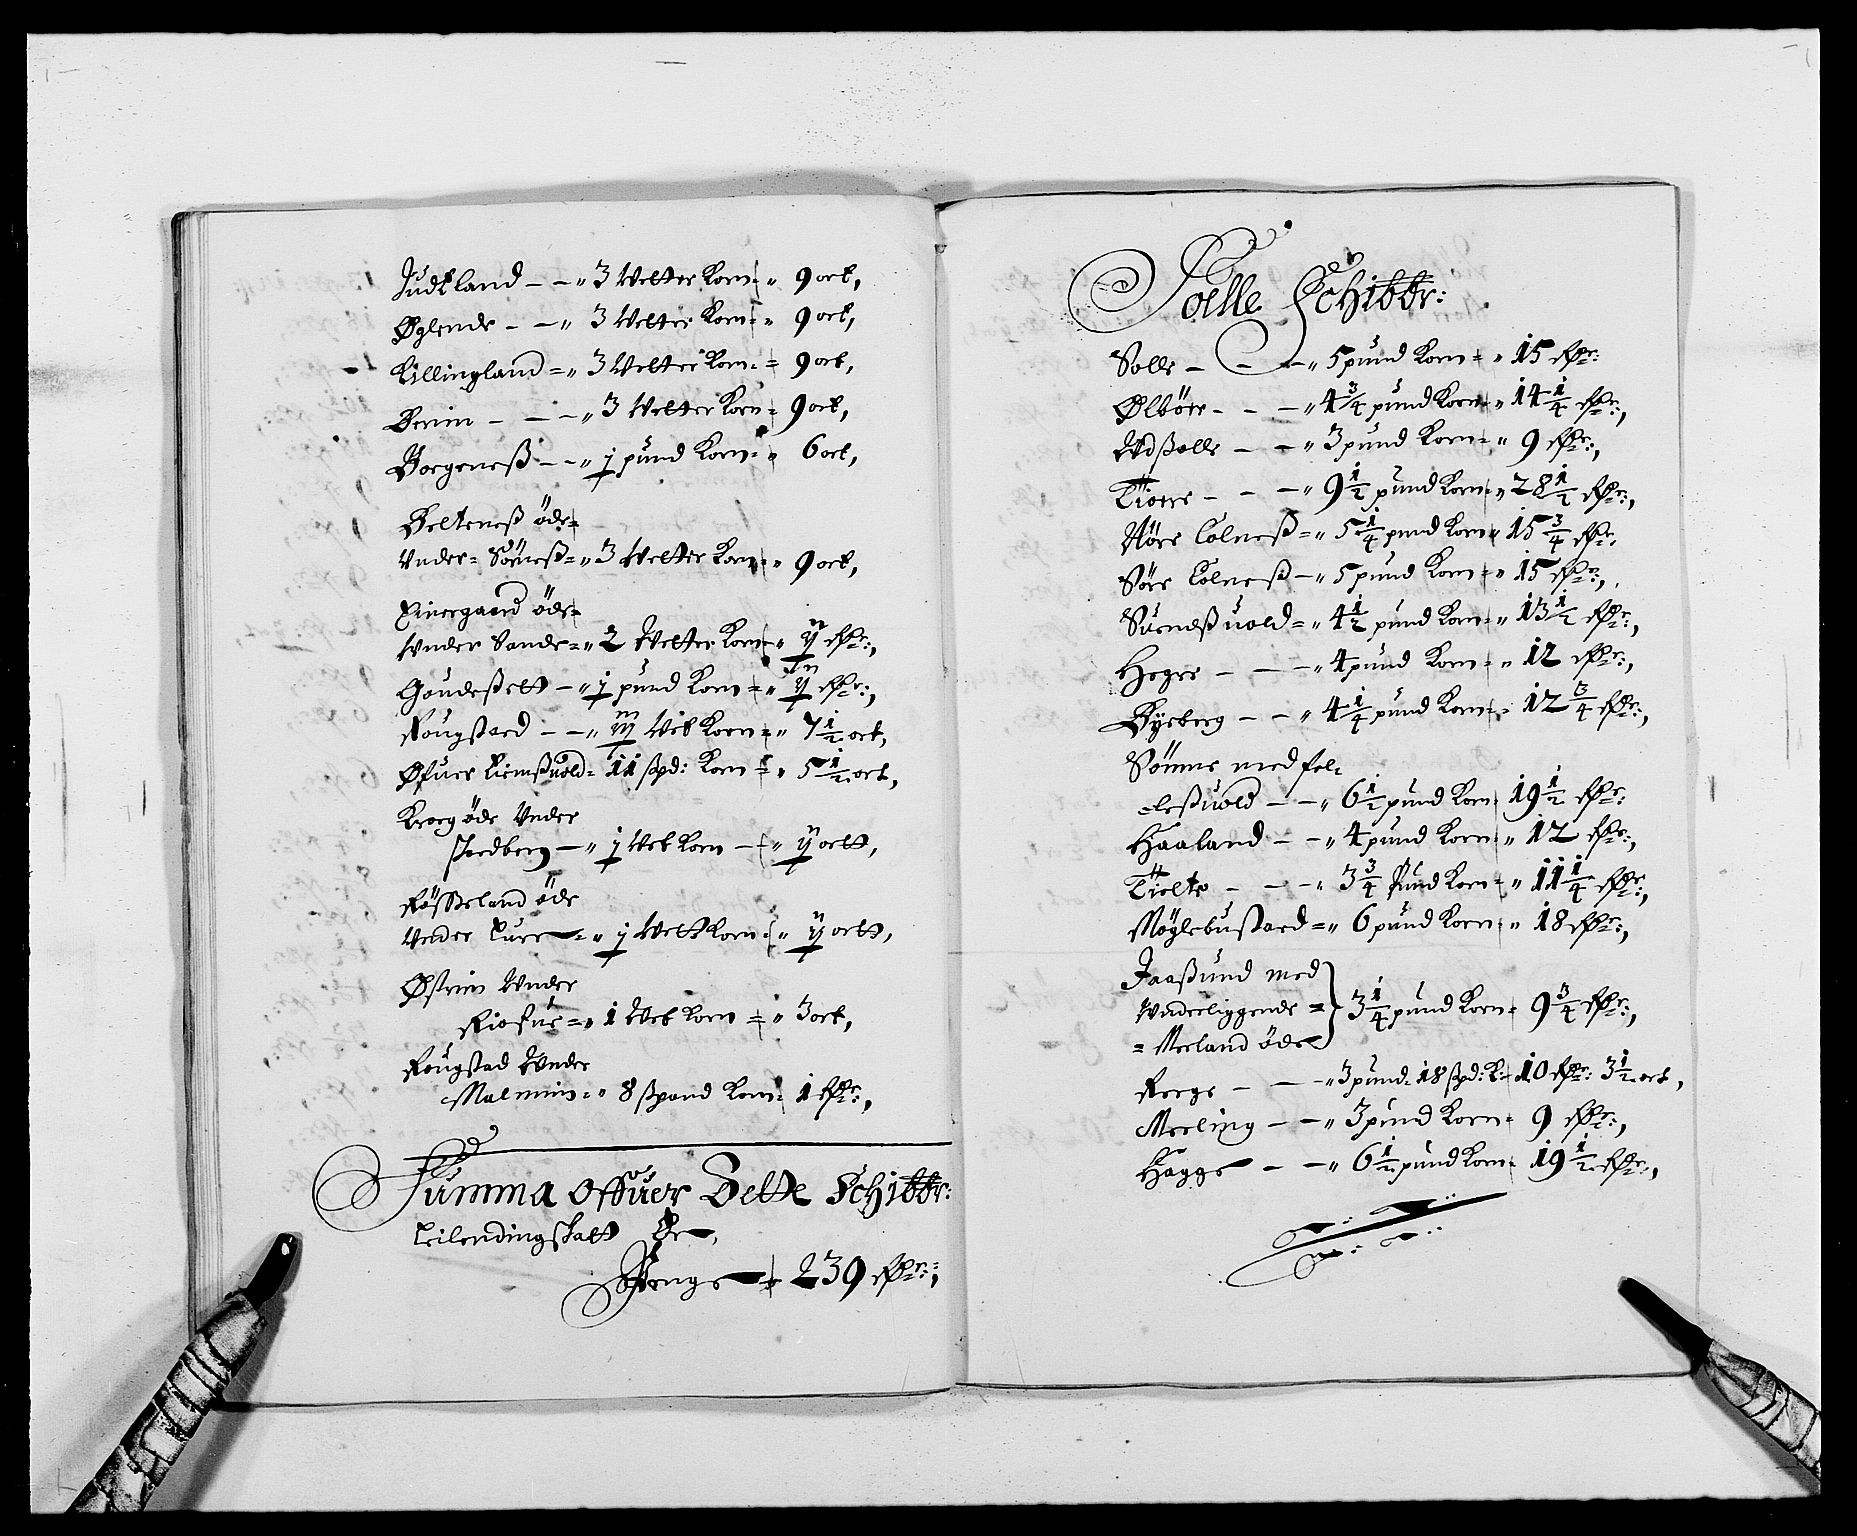 Judtland – – „ 3 Vetter Korn = „ 9 ort,
Øglende – – „ 3 Vetter Korn = „ 9 ort,
Killingland = „ 3 Vetter Korn = 9 ort,
– – – „ 3 Vetter Korn = 9 ort,
Borgeneß – – „ j pund Korn = „ 6 ort,
Belteneß öde =
Vnder = Sörneß = „ 3 Vetter Korn = „ 9 ort,
öde =
Vnder Sande = „ 2 Vetter Korn „ ij Rdr:,
Goudeßett – „ j pund Korn = „ ij Rdr:,
Rougstad – – „ Vet Korn = „ 7 1/2 ort,
Øfuer Tiemßuold = 11 ßpd: Korn = „ 5 1/2 ort,
Krog öde Vnder
Stedberg – „ j Vet Korn – „ ij ortt,
Rößeland öde
Vnder = „ j Vett Korn = „ ij ortt,
Østrim Vnder
Riosuer = „ 1 Vet Korn = „ 3 ort,
Rougstad Vnder
Malmim = „ 8 ßpand Korn = 1 Rdr:,
Summa offuer Dette Schibbr:
Leilendingskatt Er,
Penge 239 Rdr:,
Soelle Schibbr:
Solle – – – „ 5 pund Korn = „ 15 Rdr:
Ølbör – – – „ 4 3/4 pund Korn „ 14 1/4 Rdr:,
Vdßolle – – „ 3 pund Korn = „ 9 Rdr:,
Tiorre – – – „ 9 1/2 pund Korn = „ 28 1/2 Rdr:,
Nöre Tolneß = „ 5 1/4 pund Korn „ 15 3/4 Rdr:
Söre Tolneß – „ 5 pund Korn = „ 15 Rdr:,
Suendßuold = „ 4 1/2 pund Korn = „ 13 1/2 Rdr:,
Hegre – – – „ 4 pund Korn = „ 12 Rdr:,
Byeberg – – „ 4 1/4 pund Korn = 12 3/4 Rdr:,
Sömme med
eßuold – – „ 6 1/2 pund Korn = 19 1/2 Rdr:
Haaland – – „ 4 pund Korn „ 12 Rdr:,
Tielte – – – „ 3 3/4 Pund Korn = „ 11 1/4 Rdr:,
Möglebustad = „ 6 pund Korn = „ 18 Rdr:,
Jaaßund med
Vnderliggende = 3 1/4 pund Korn = 9 3/4 Rdr:,
= Meeland öde
Rege – – – „ 3 pund = 18 ßpd: K: 10 Rdr: 3 1/2 ort,
Meeling – – „ 3 pund Korn = 9 Rdr:,
Hogge – – „ 6 1/2 pund Korn = 19 1/2 Rdr:,